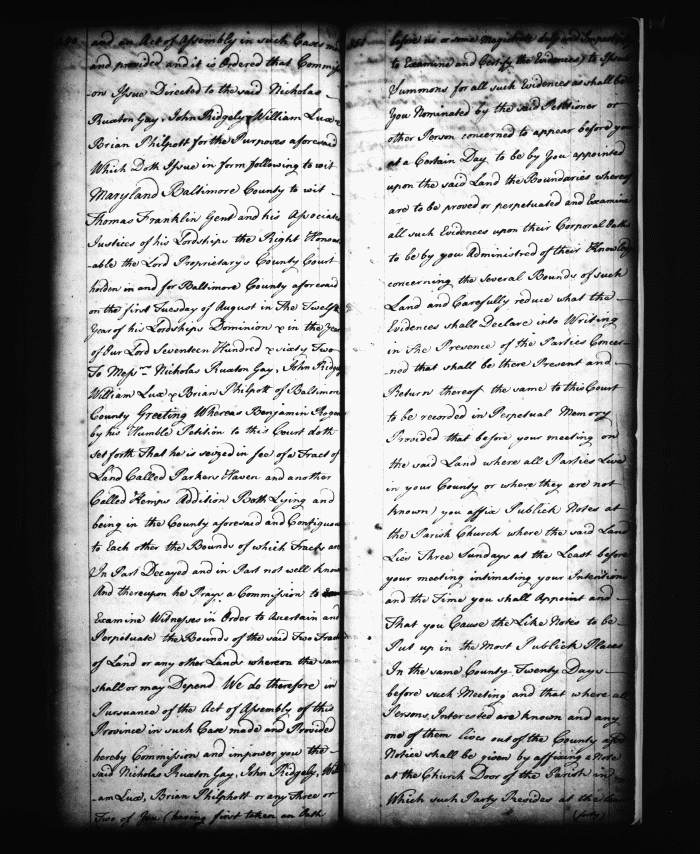 and an Act of Assembly in such Cases
and provided and it is Ordered that Commissi
-on Issue Directed to the said Nicholas
Ruxton Gay, John Ridgely & William Lux &
Brian Philpott for the Purposes aforesaid
Which Doth Issue in form following to wit
Maryland Baltimore County to wit
Thomas Franklin Gent and his Associate
Justices of his Lordships the Right Honour
-able the Lord Proprietary's County Court
holden in and for Baltimore County aforesaid
on the first Tuesday of August in The Twelfth
Year of his Lordships Dominion & in the Year
of Our Lord Seventeen Hundred & sixty Two
To Messrs Nicholas Ruxton Gay, John Ridgely
William Lux & Brian Philpott of Baltimore
County Greeting Whereas Benjamin
by his Humble Petition to this Court doth
set forth That he is seized in fee of a Tract of
Land Called Parkers Haven and another
Called Kemps Addition Both Lying and
being in the County aforesaid and Contiguous
to Each other the Bounds of which Tracts are
In Part Decayed and in Part not well know
And thereupon he Prays a Commission to
Examine Witnesses in Order to Ascertain and
Perpetuate the Bounds of the said Two Tracts
of Land or any other Lands whereon the same
shall or may Depend We do therefore in
Pursuance of the Act of Assembly of this
Province in such Case made and Provided
hereby Commission and impower you the
said Nicholas Ruxton Gay, John Ridgely, Will
-am Lux, Brian Philphott or any Three or
Two of You (having first taken an Oath
before us or some Magistrate duly and Impartially
to Examine and Certify the Evidences) to Issue
Summons for all such Evidences as shall be
You Nominated by the said Petitioner or
other Person concerned to appear before you
at a Certain Day to be by You appointed
upon the said Land the Boundaries whereof
are to be proved or perpetuated and Examine
all such Evidences upon their Corporal Oaths
to be by you Administred of their Knowledge
concerning the Several Bounds of such
Land and Carefully reduce what the
Evidences shall Declare into Writing
in The Presence of the Parties Concer
ned that shall be there Present and
Return thereof the same to this Court
to be recorded in Perpetual Memory
Provided that before your meeting on
the said Land where all Parties Live
in your County or where they are not
known, you affix Publick Notes at
the Parish Church where the said Land
Lies Three Sundays at the Least before
your meeting intimating your Intention
and the Time you shall Appoint and
That you Cause the Like Notes to be
Put up in the Most Publick Places
In the same County Twenty Days
before such Meeting and that where all
Persons Interested are known and any
one of them lives out of the County
Notice shall be given by affixing a Note
at the Church Door of the Parish in
Which such Party Presides at the